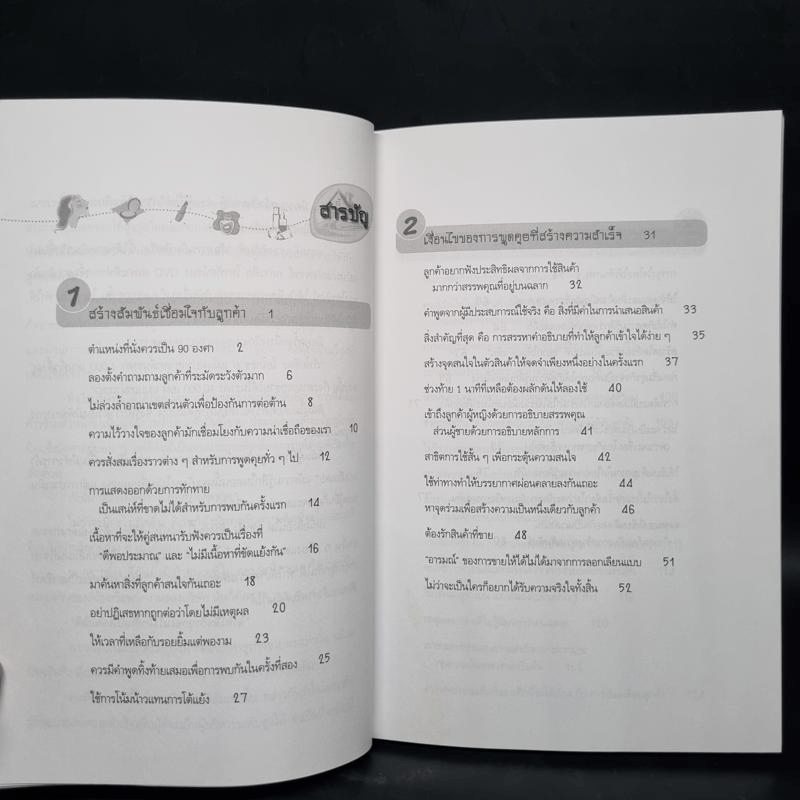 สารบัญ
1
สร้างสัมพันธ์เชื่อมใจกับลูกค้า 1
ตำแหน่งที่นั่งควรเป็น 90 องศา 2
ลองตั้งคำถามถามลูกค้าที่ระมัดระวังตัวมาก 6
ไม่ล่วงล้ำอาณาเขตส่วนตัวเพื่อป้องกันการต่อต้าน 8
ความไว้วางใจของลูกค้ามักเชื่อมโยงกับความน่าเชื่อถือของเรา 10
ควรสั่งสมเรื่องราวต่าง ๆ สำหรับการพูดคุยทั่ว ๆ ไป 12
การแสดงออกด้วยการทักทาย
เป็นเสน่ห์ที่ขาดไม่ได้สำหรับการพบกันครั้งแรก 14
เนื้อหาที่จะให้คู่สนทนารับฟังควรเป็นเรื่องที่
"ดีพอประมาณ" และ "ไม่มีเนื้อหาที่ขัดแย้งกัน" 16
มาค้นหาสิ่งที่ลูกค้าสนใจกันเถอะ 18
อย่าปฏิเสธหากถูกต่อว่าโดยไม่มีเหตุผล 20
ให้เวลาที่เหลือกับรอยยิ้มแต่พองาม 23
ควรมีคำพูดทิ้งท้ายเสมอเพื่อการพบกันในครั้งที่สอง 25
ใช้การโน้มน้าวแทนการโต้แย้ง 27
2
เงื่อนไขของการพูดคุยที่สร้างความสำเร็จ 31
ลูกค้าอยากฟังประสิทธิผลจากการใช้สินค้า
มากกว่าสรรพคุณที่อยู่บนฉลาก 32
คำพูดจากผู้มีประสบการณ์ใช้จริง คือ สิ่งที่มีค่าในการนำเสนอสินค้า 33
สิ่งสำคัญที่สุด คือ การสรรหาคำอธิบายที่ทำให้ลูกค้าเข้าใจได้ง่าย ๆ 35
สร้างจุดสนใจในตัวสินค้าให้จดจำเพียงหนึ่งอย่างในครั้งแรก 37
ช่วงท้าย 1 นาทีที่เหลือต้องผลักดันให้ลองใช้ 40
เข้าถึงลูกค้าผู้หญิงด้วยการอธิบายสรรพคุณ
ส่วนผู้ชายด้วยการอธิบายหลักการ 41
สาธิตการใช้สั้น ๆ เพื่อกระตุ้นความสนใจ 42
ใช้ท่าทางทำให้บรรยากาศผ่อนคลายลงกันเถอะ 44
หาจุดร่วมเพื่อสร้างความเป็นหนึ่งเดียวกับลูกค้า 46
ต้องรักสินค้าที่ขาย 48
"อารมณ์" ของการขายให้ได้ไม่ได้มาจากการลอกเลียนแบบ 51
ไม่ว่าจะเป็นใครก็อยากได้รับความจริงใจทั้งสิ้น 52